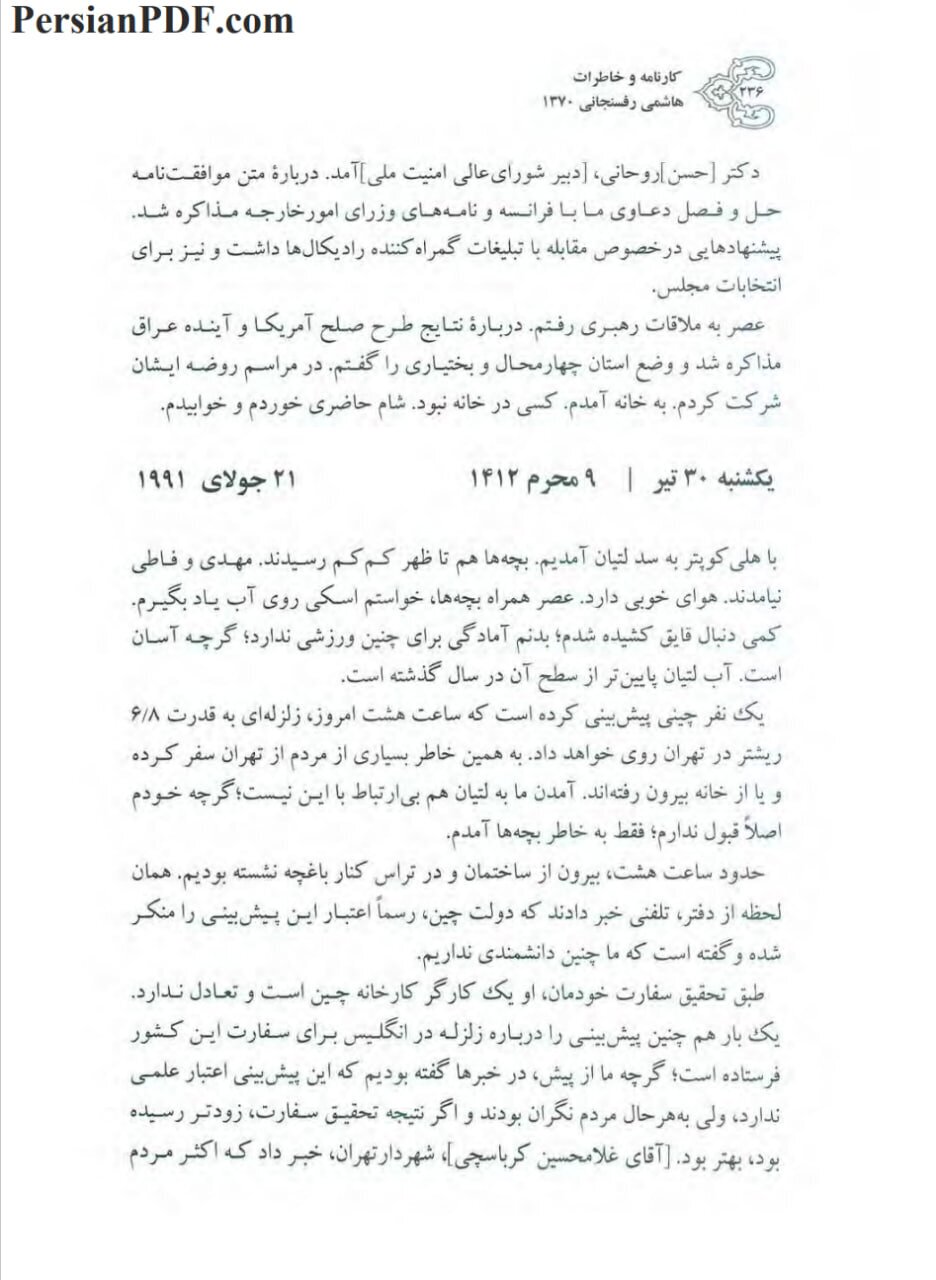 PersianPDF.com
کارنامه و خاطرات
هاشمی رفسنجانی ۱۳۷۰
۲۳۶
دکتر [حسن]روحانی، [دبیر شورای‌عالی امنیت ملی]آمد. دربارهٔ متن موافقت‌نامه
حل و فصل دعاوی ما با فرانسه و نامه‌های وزرای امورخارجه مذاکره شد.
پیشنهادهایی درخصوص مقابله با تبلیغات گمراه‌کننده رادیکال‌ها داشت و نیز برای
انتخابات مجلس.
عصر به ملاقات رهبری رفتم. دربارهٔ نتایج طرح صلح آمریکا و آینده عراق
مذاکره شد و وضع استان چهارمحال و بختیاری را گفتم. در مراسم روضه ایشان
شرکت کردم. به خانه آمدم. کسی در خانه نبود. شام حاضری خوردم و خوابیدم.
یکشنبه ۳۰ تیر | ۹ محرم ۱۴۱۲ ۲۱ جولای ۱۹۹۱
با هلی‌کوپتر به سد لتیان آمدیم. بچه‌ها هم تا ظهر کم‌کم رسیدند. مهدی و فاطی
نیامدند. هوای خوبی دارد. عصر همراه بچه‌ها، خواستم اسکی روی آب یاد بگیرم.
کمی دنبال قایق کشیده شدم؛ بدنم آمادگی برای چنین ورزشی ندارد؛ گرچه آسان
است. آب لتیان پایین‌تر از سطح آن در سال گذشته است.
یک نفر چینی پیش‌بینی کرده است که ساعت هشت امروز، زلزله‌ای به قدرت ۶/۸
ریشتر در تهران روی خواهد داد. به همین خاطر بسیاری از مردم از تهران سفر کرده
و یا از خانه بیرون رفته‌اند. آمدن ما به لتیان هم بی‌ارتباط با این نیست؛گرچه خودم
اصلاً قبول ندارم؛ فقط به خاطر بچه‌ها آمدم.
حدود ساعت هشت، بیرون از ساختمان و در تراس کنار باغچه نشسته بودیم. همان
لحظه از دفتر، تلفنی خبر دادند که دولت چین، رسماً اعتبار این پیش‌بینی را منکر
شده و گفته است که ما چنین دانشمندی نداریم.
طبق تحقیق سفارت خودمان، او یک کارگر کارخانه چین است و تعادل ندارد.
یک بار هم چنین پیش‌بینی را درباره زلزله در انگلیس برای سفارت این کشور
فرستاده است؛ گرچه ما از پیش، در خبرها گفته بودیم که این پیش‌بینی اعتبار علمی
ندارد، ولی به‌هرحال مردم نگران بودند و اگر نتیجه تحقیق سفارت، زودتر رسیده
بود، بهتر بود. [آقای غلامحسین کرباسچی]، شهردارتهران، خبر داد که اکثر مردم